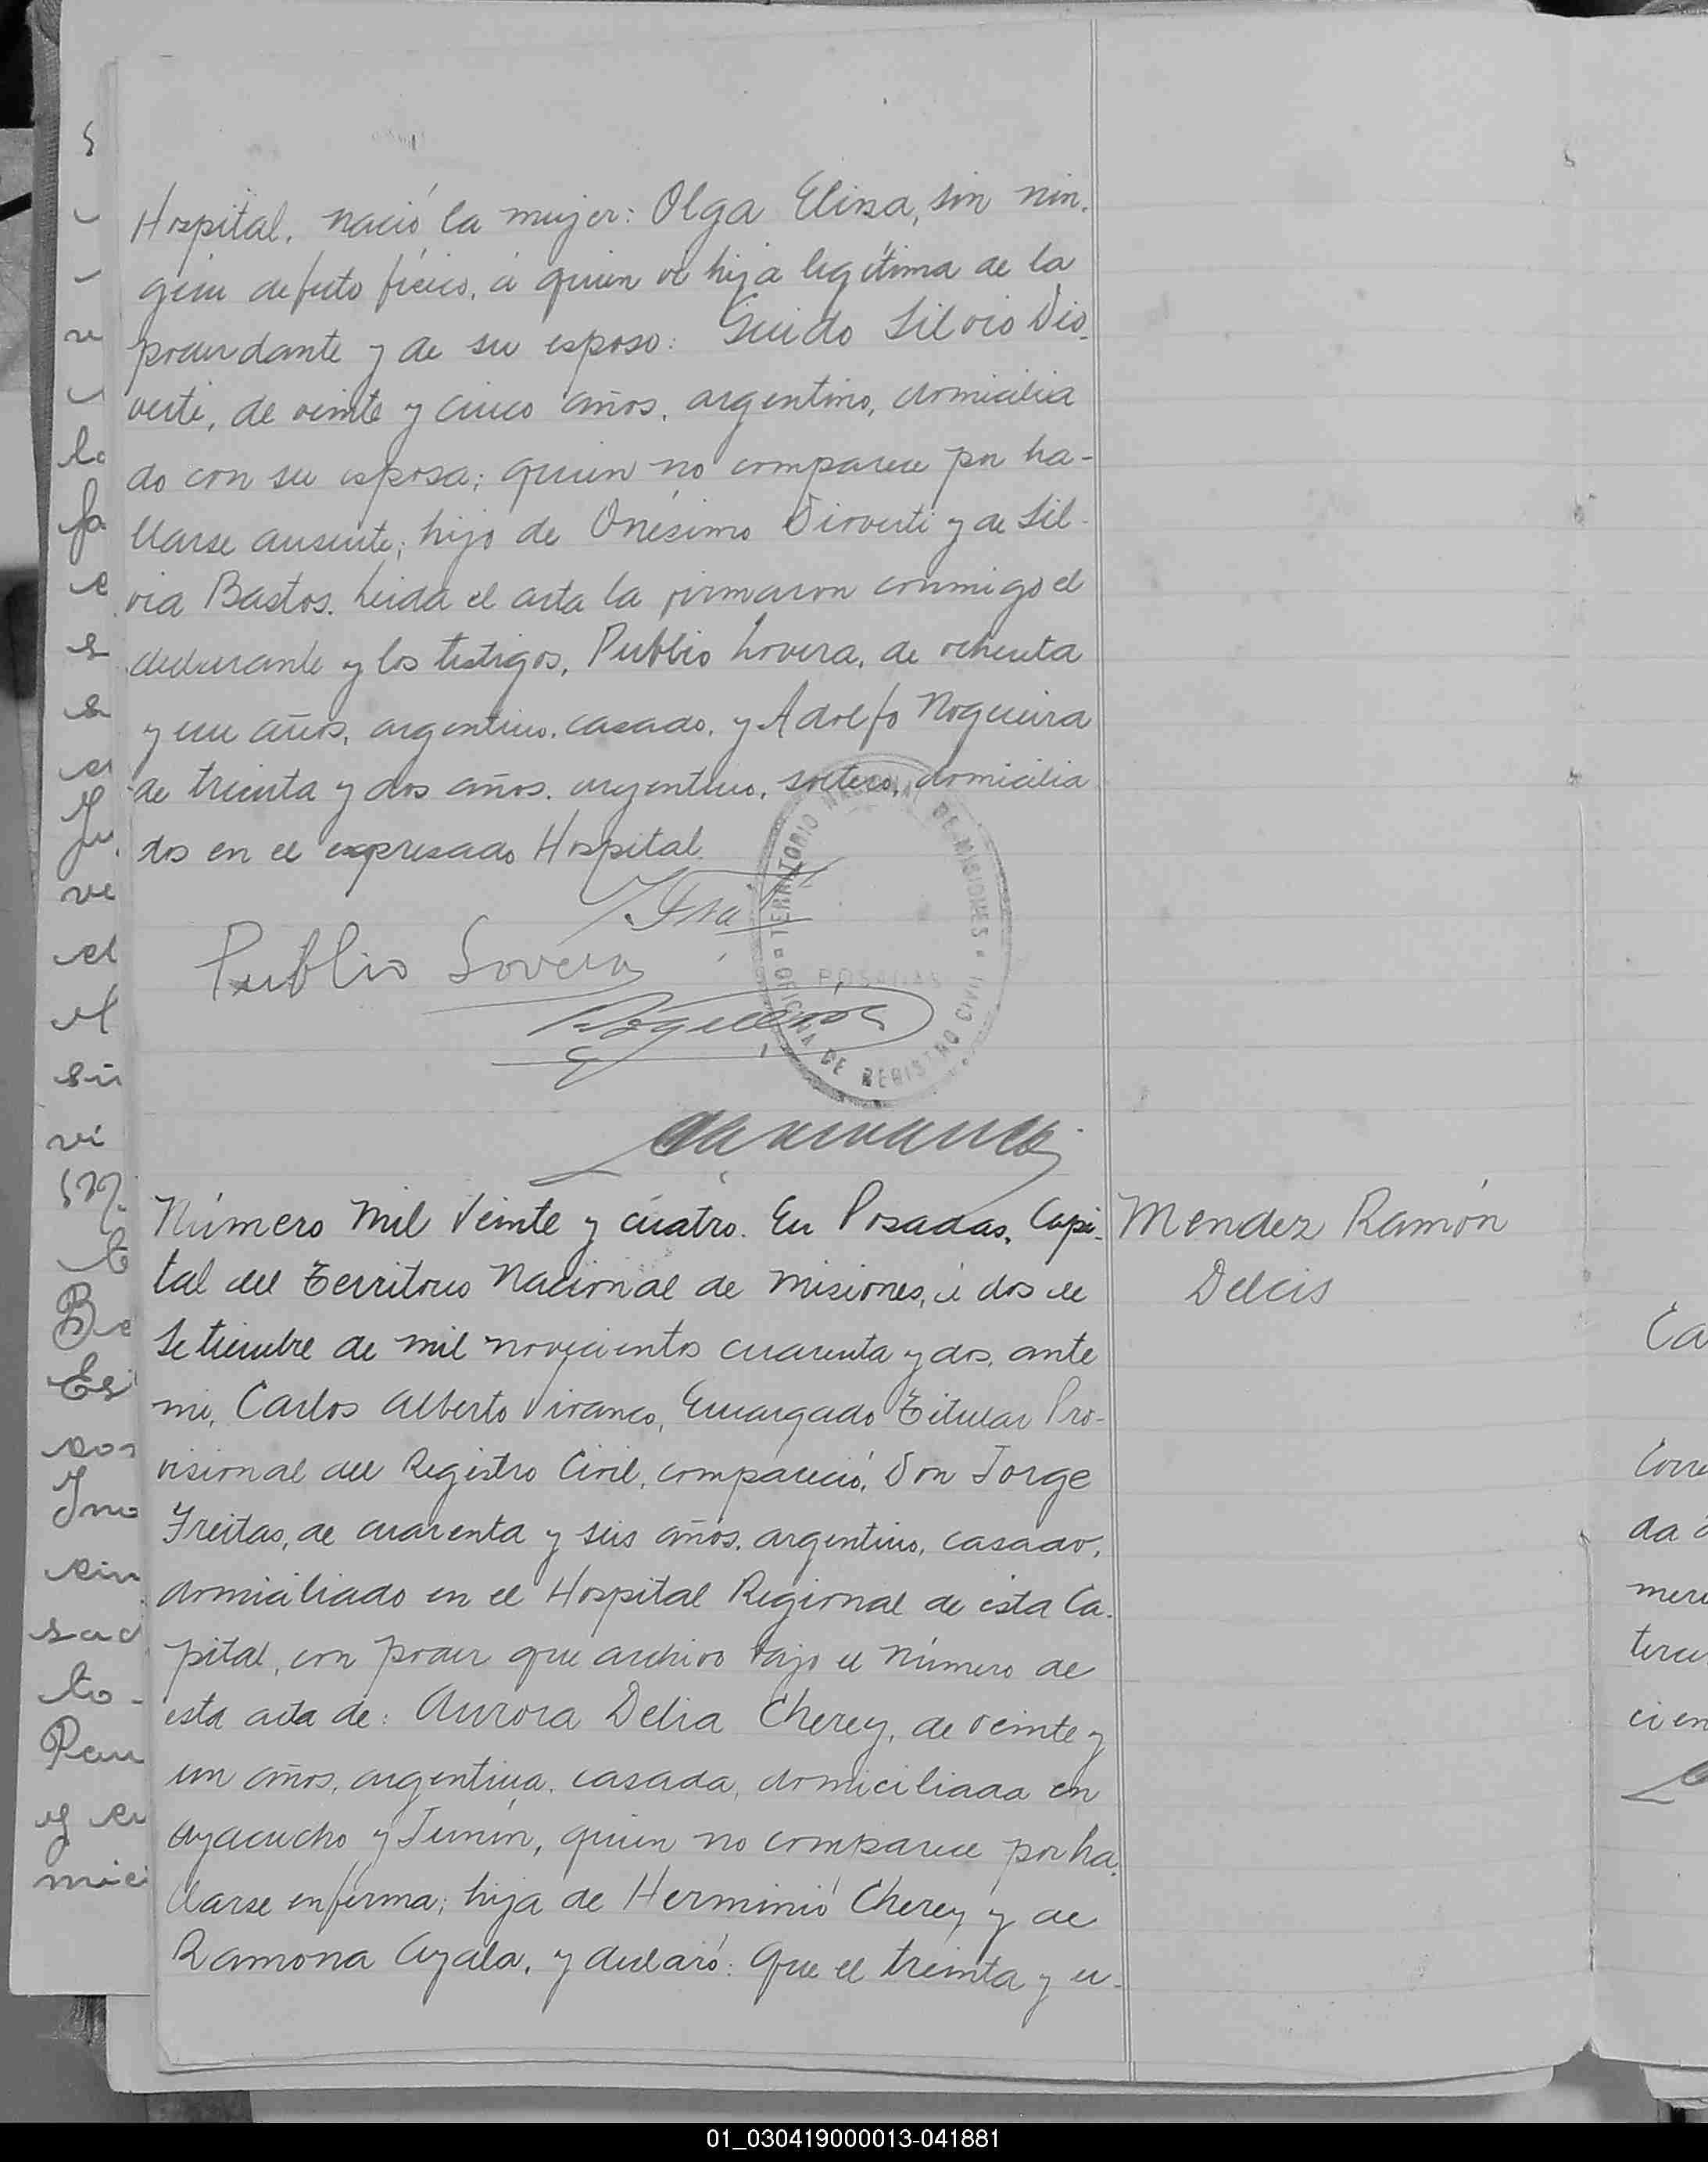 Hospital, nació la mujer: Olga Elina, sin nin-
gún defecto físico, á quien vi hija legítima de la
poderdante y de su esposo: Guido Silvio Dio-
verti, de veinte y cinco años, argentino, domicilia
do con su esposa; quien no comparece por ha-
llarse ausente; hijo de Onésimo Dioverti y de Sil-
via Bastos. Leida el acta la firmaron conmigo el
declarante y los testigos, Publio Lovera, de ochenta
y un años, argentino, casado, y Adolfo Nogueira
de treinta y dos años, argentino, soltero, domicilia
dos en el expresado Hospital.
Publio Lovera
Nogueira
TERRITORIO NACIONAL DE MISIONES
POSADAS
OFICINA DE REGISTRO CIVIL
Número Mil Veinte y cuatro. En Posadas, Capi-
tal del Territorio Nacional de Misiones, á dos de
Setiembre de mil novecientos cuarenta y dos, ante
mi, Carlos Alberto Vivanco, Encargado Titular Pro-
visional del Registro Civil, compareció, Don Jorge
Freitas, de cuarenta y seis años, argentino, casado,
domiciliado en el Hospital Regional de esta Ca-
pital, con poder que archivo bajo el número de
esta acta de: Aurora Delia Cherey, de veinte y
un años, argentina, casada, domiciliada en
Ayacucho y Junín, quien no comparece por ha-
llarse enferma; hija de Herminio Cherey y de
Ramona Ayala, y declaró: Que el treinta y u-
Mendez Ramón
Delcis
01_030419000013-041881